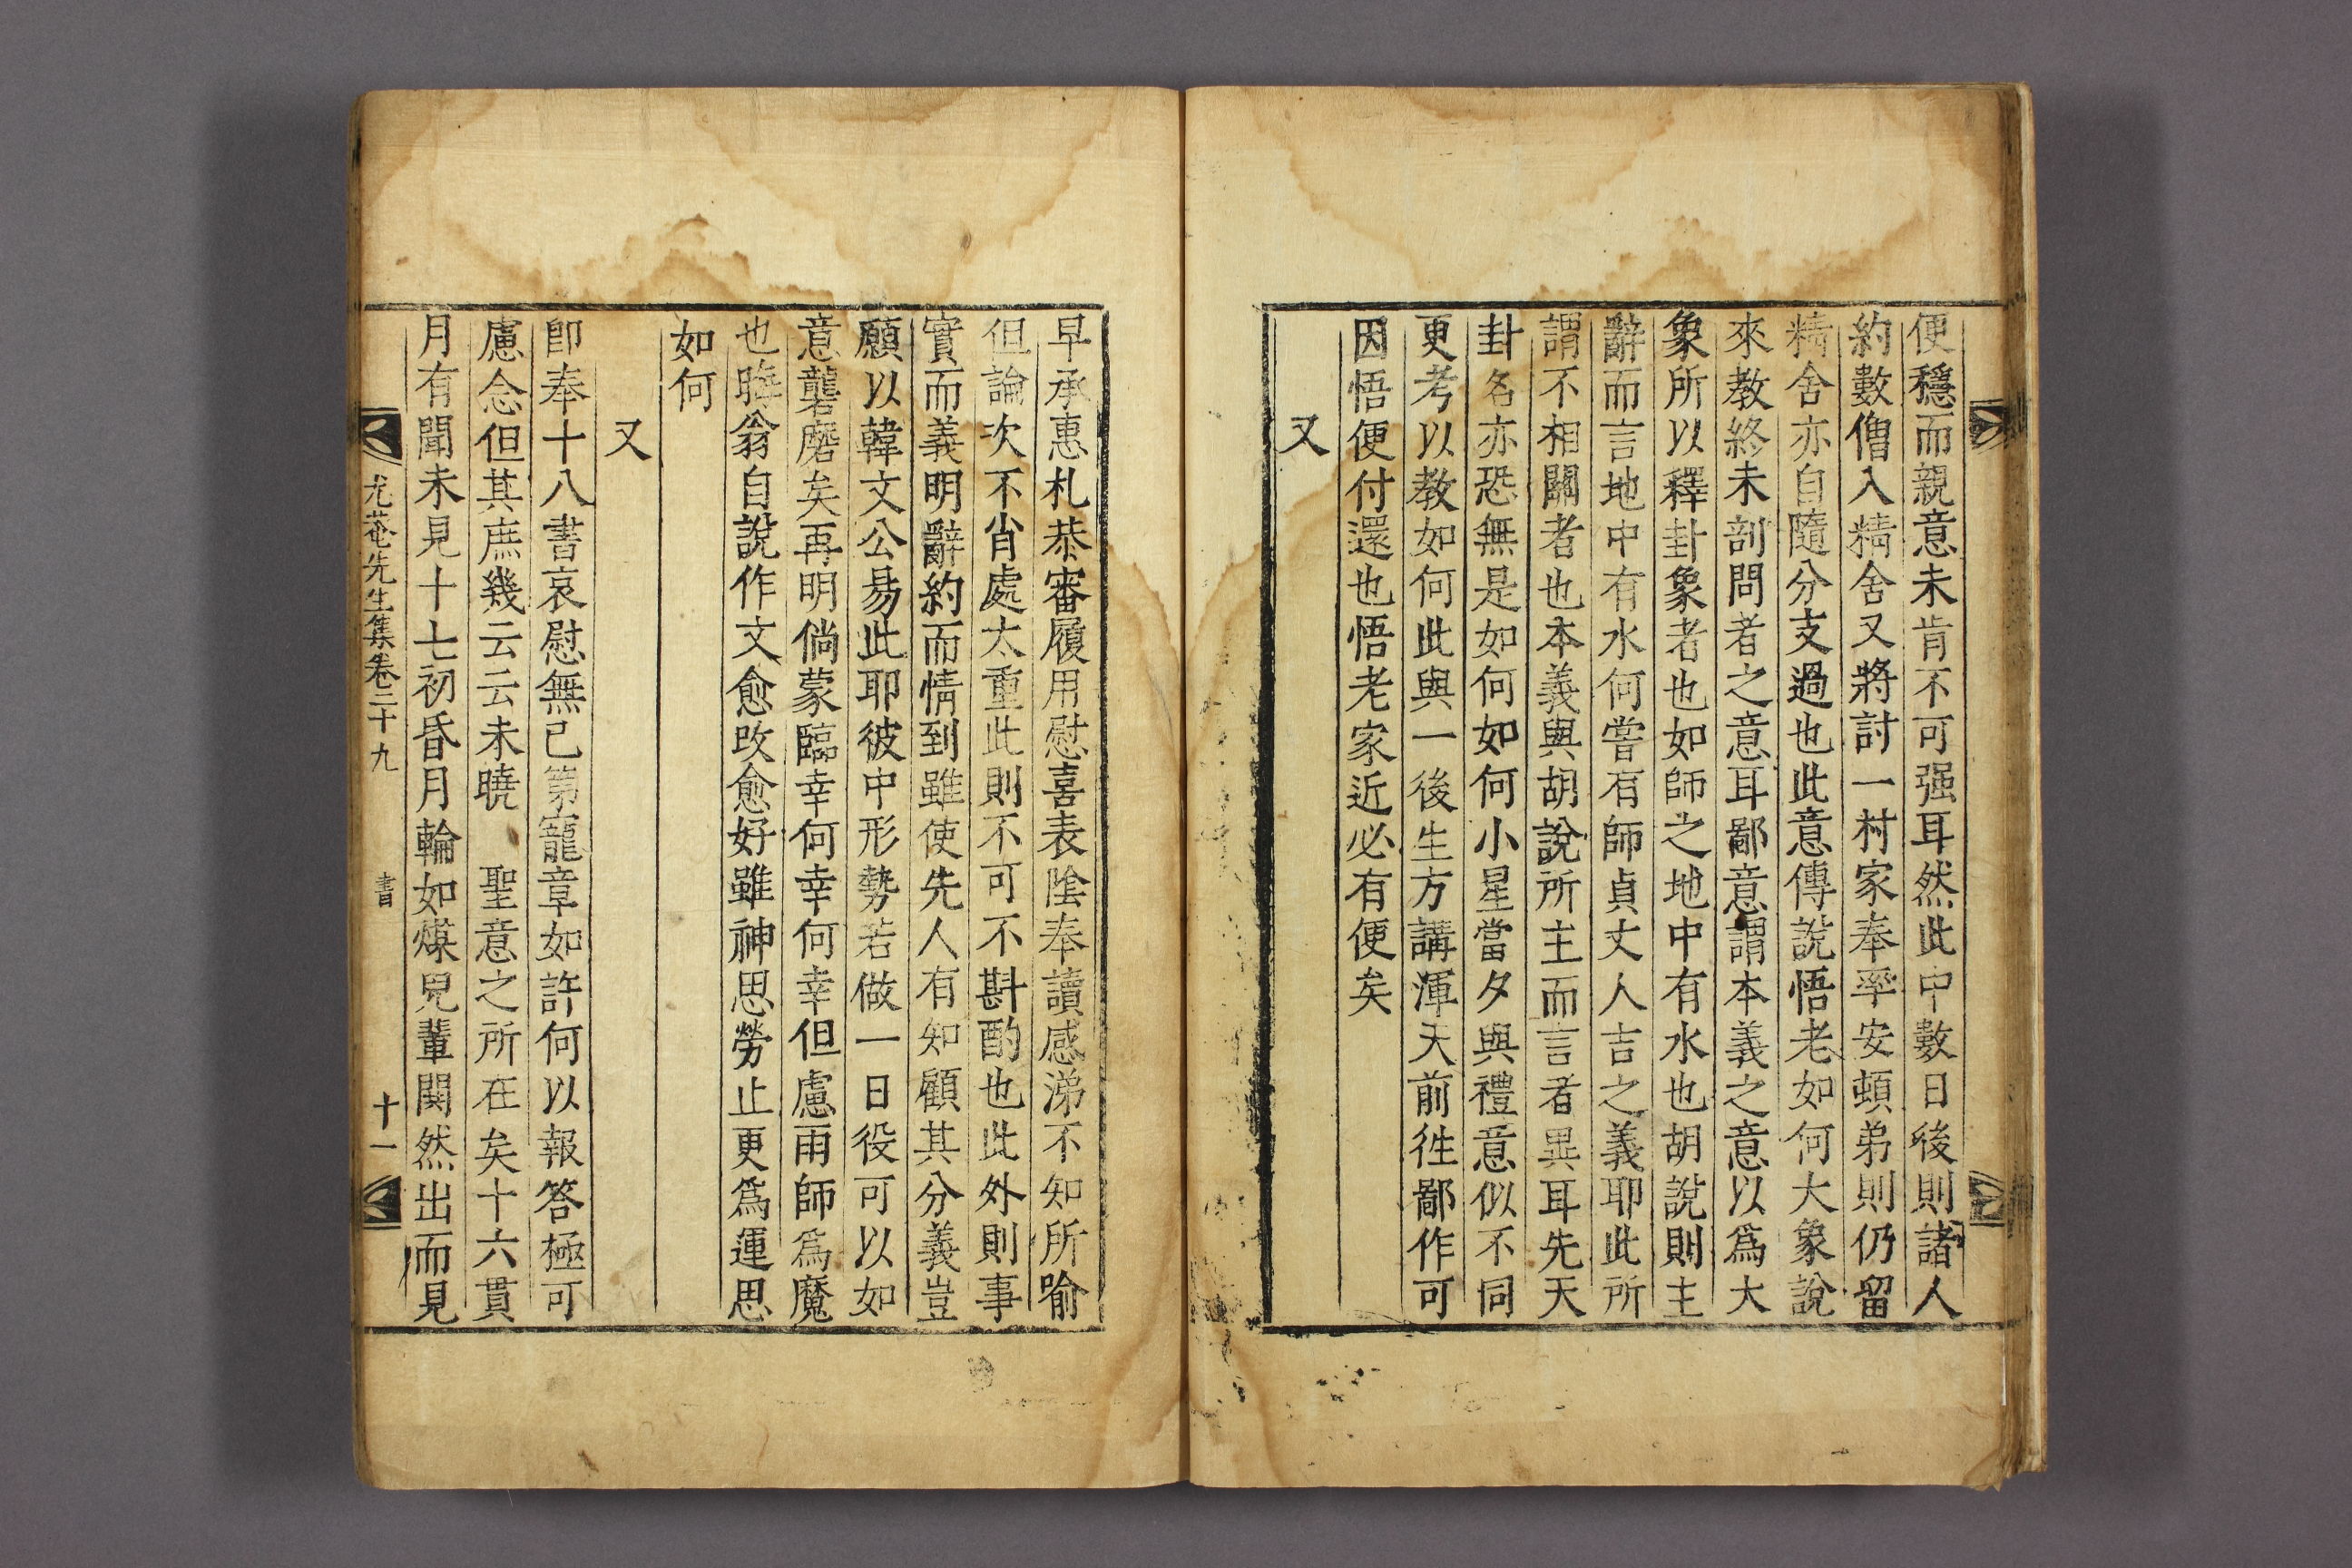 便穩而親意未肯不可强耳然此中數日後則諸人
約數僧入精舍又將討一村家奉率安頓弟則仍留
精舍亦自隨分支過也此意傳說悟老如何大象說
來教終未剖問者之意耳鄙意謂本義之意以爲大
象所以釋卦象者也如師之地中有水也胡說則主
辭而言地中有水何嘗有師貞丈人吉之義耶此所
謂不相關者也本義與胡說所主而言者異耳先天
卦名亦恐無是如何如何小星當夕與禮意似不同
更考以教如何此與一後生方講渾天前徃鄙作可
因悟便付還也悟老家近必有便矣
又
早承惠札恭審履用慰喜表陰奉讀感涕不知所喩
但論次不肖處太重此則不可不斟酌也此外則事
實而義明辭約而情到雖使先人有知顧其分義豈
願以韓文公易此耶彼中形勢若做一日役可以如
意礱磨矣再明倘蒙臨幸何幸何幸但慮雨師爲魔
也晦翁自說作文愈改愈好雖神思勞止更爲運思
如何
又
卽奉十八書哀慰無已第寵章如許何以報答極可
慮念但其庶幾云云未曉 聖意之所在矣十六貫
月有聞未見十七初昏月輪如煤兒輩閧然出而見
尤菴先生集卷二十九 書 十一